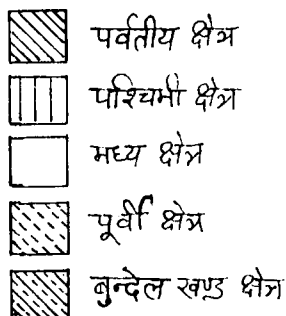 पर्वतीय क्षेत्र
पश्चिमी क्षेत्र
मध्य क्षेत्र
पूर्वी क्षेत्र
बुन्देल खण्ड क्षेत्र